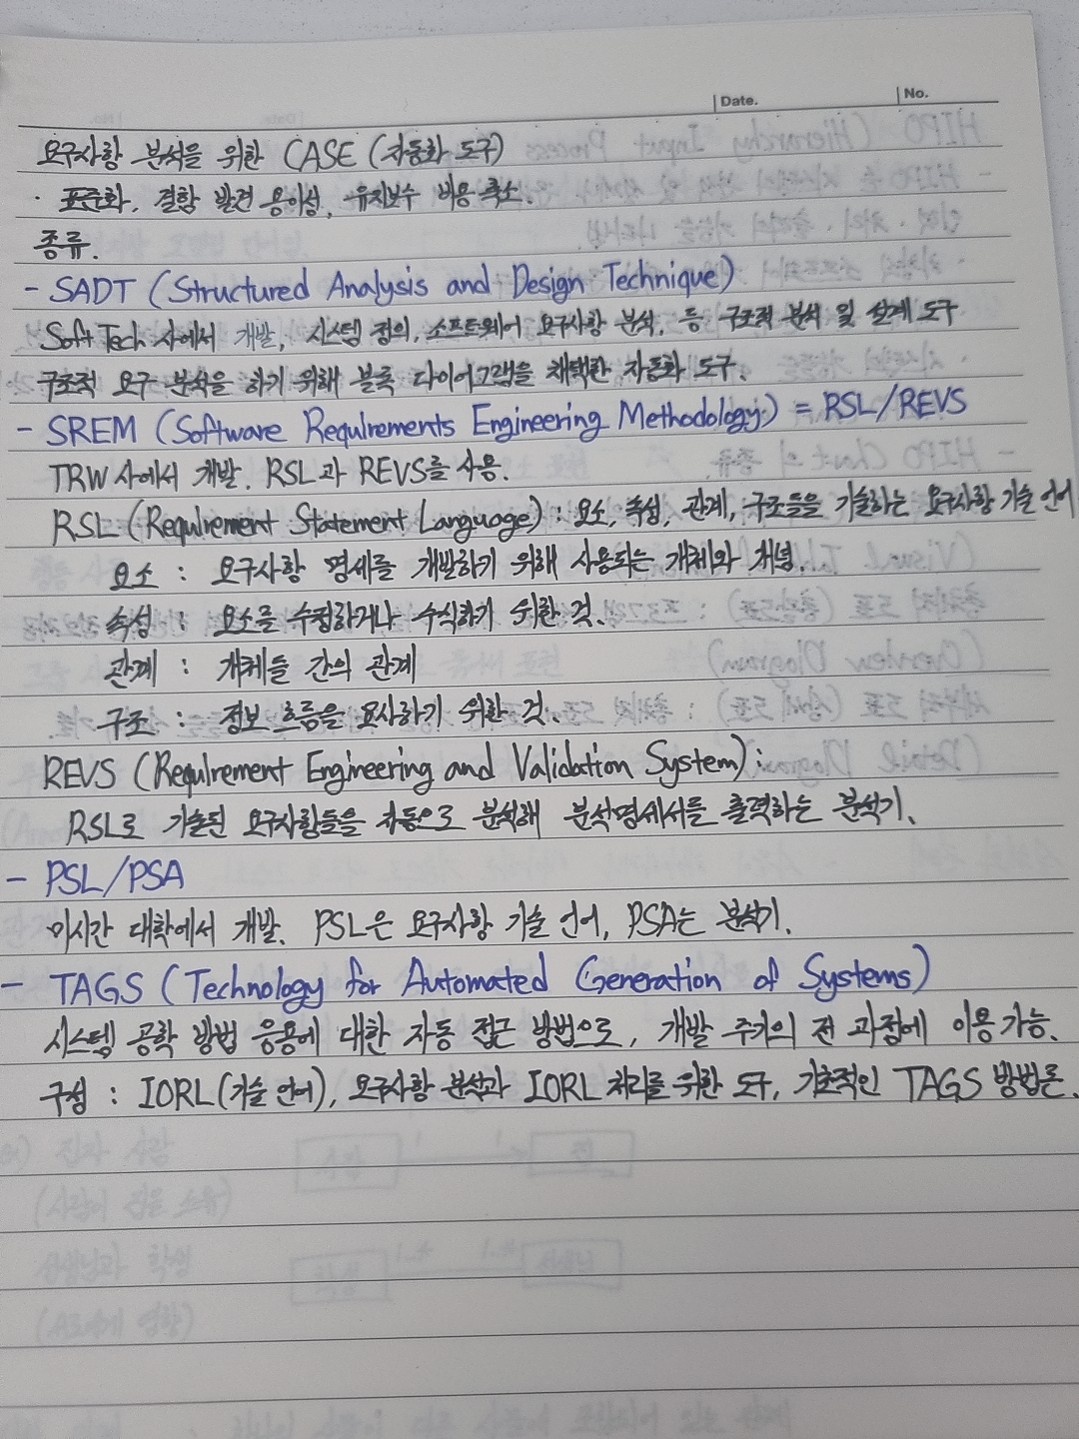 Date.
No.
요구사항 분석을 위한 CASE (자동화 도구)
· 표준화, 결함 발견 용이성, 유지보수 비용 축소.
종류.
- SADT (Structured Analysis and Design Technique)
SoftTech 사에서 개발, 시스템 정의, 소프트웨어 요구사항 분석, 등 구조적 분석 및 설계 도구
구조적 요구 분석을 하기 위해 블록 다이어그램을 채택한 자동화 도구.
- SREM (Software Requirements Engineering Methodology) = RSL/REVS
TRW 사에서 개발. RSL과 REVS를 사용.
RSL (Requirement Statement Language) : 요소, 속성, 관계, 구조들을 기술하는 요구사항 기술 언어
요소 : 요구사항 명세를 개발하기 위해 사용되는 개체와 개념.
속성 : 요소를 수정하거나 수식하기 위한 것.
관계 : 개체들 간의 관계
구조 : 정보 흐름을 묘사하기 위한 것.
REVS (Requirement Engineering and Validation System) :
RSL로 기술된 요구사항들을 자동으로 분석해 분석명세서를 출력하는 분석기.
- PSL/PSA
미시간 대학에서 개발. PSL은 요구사항 기술 언어, PSA는 분석기.
- TAGS (Technology for Automated Generation of Systems)
시스템 공학 방법 응용에 대한 자동 접근 방법으로, 개발 주기의 전 과정에 이용 가능.
구성 : IORL(기술 언어), 요구사항 분석과 IORL 처리를 위한 도구, 기초적인 TAGS 방법론.